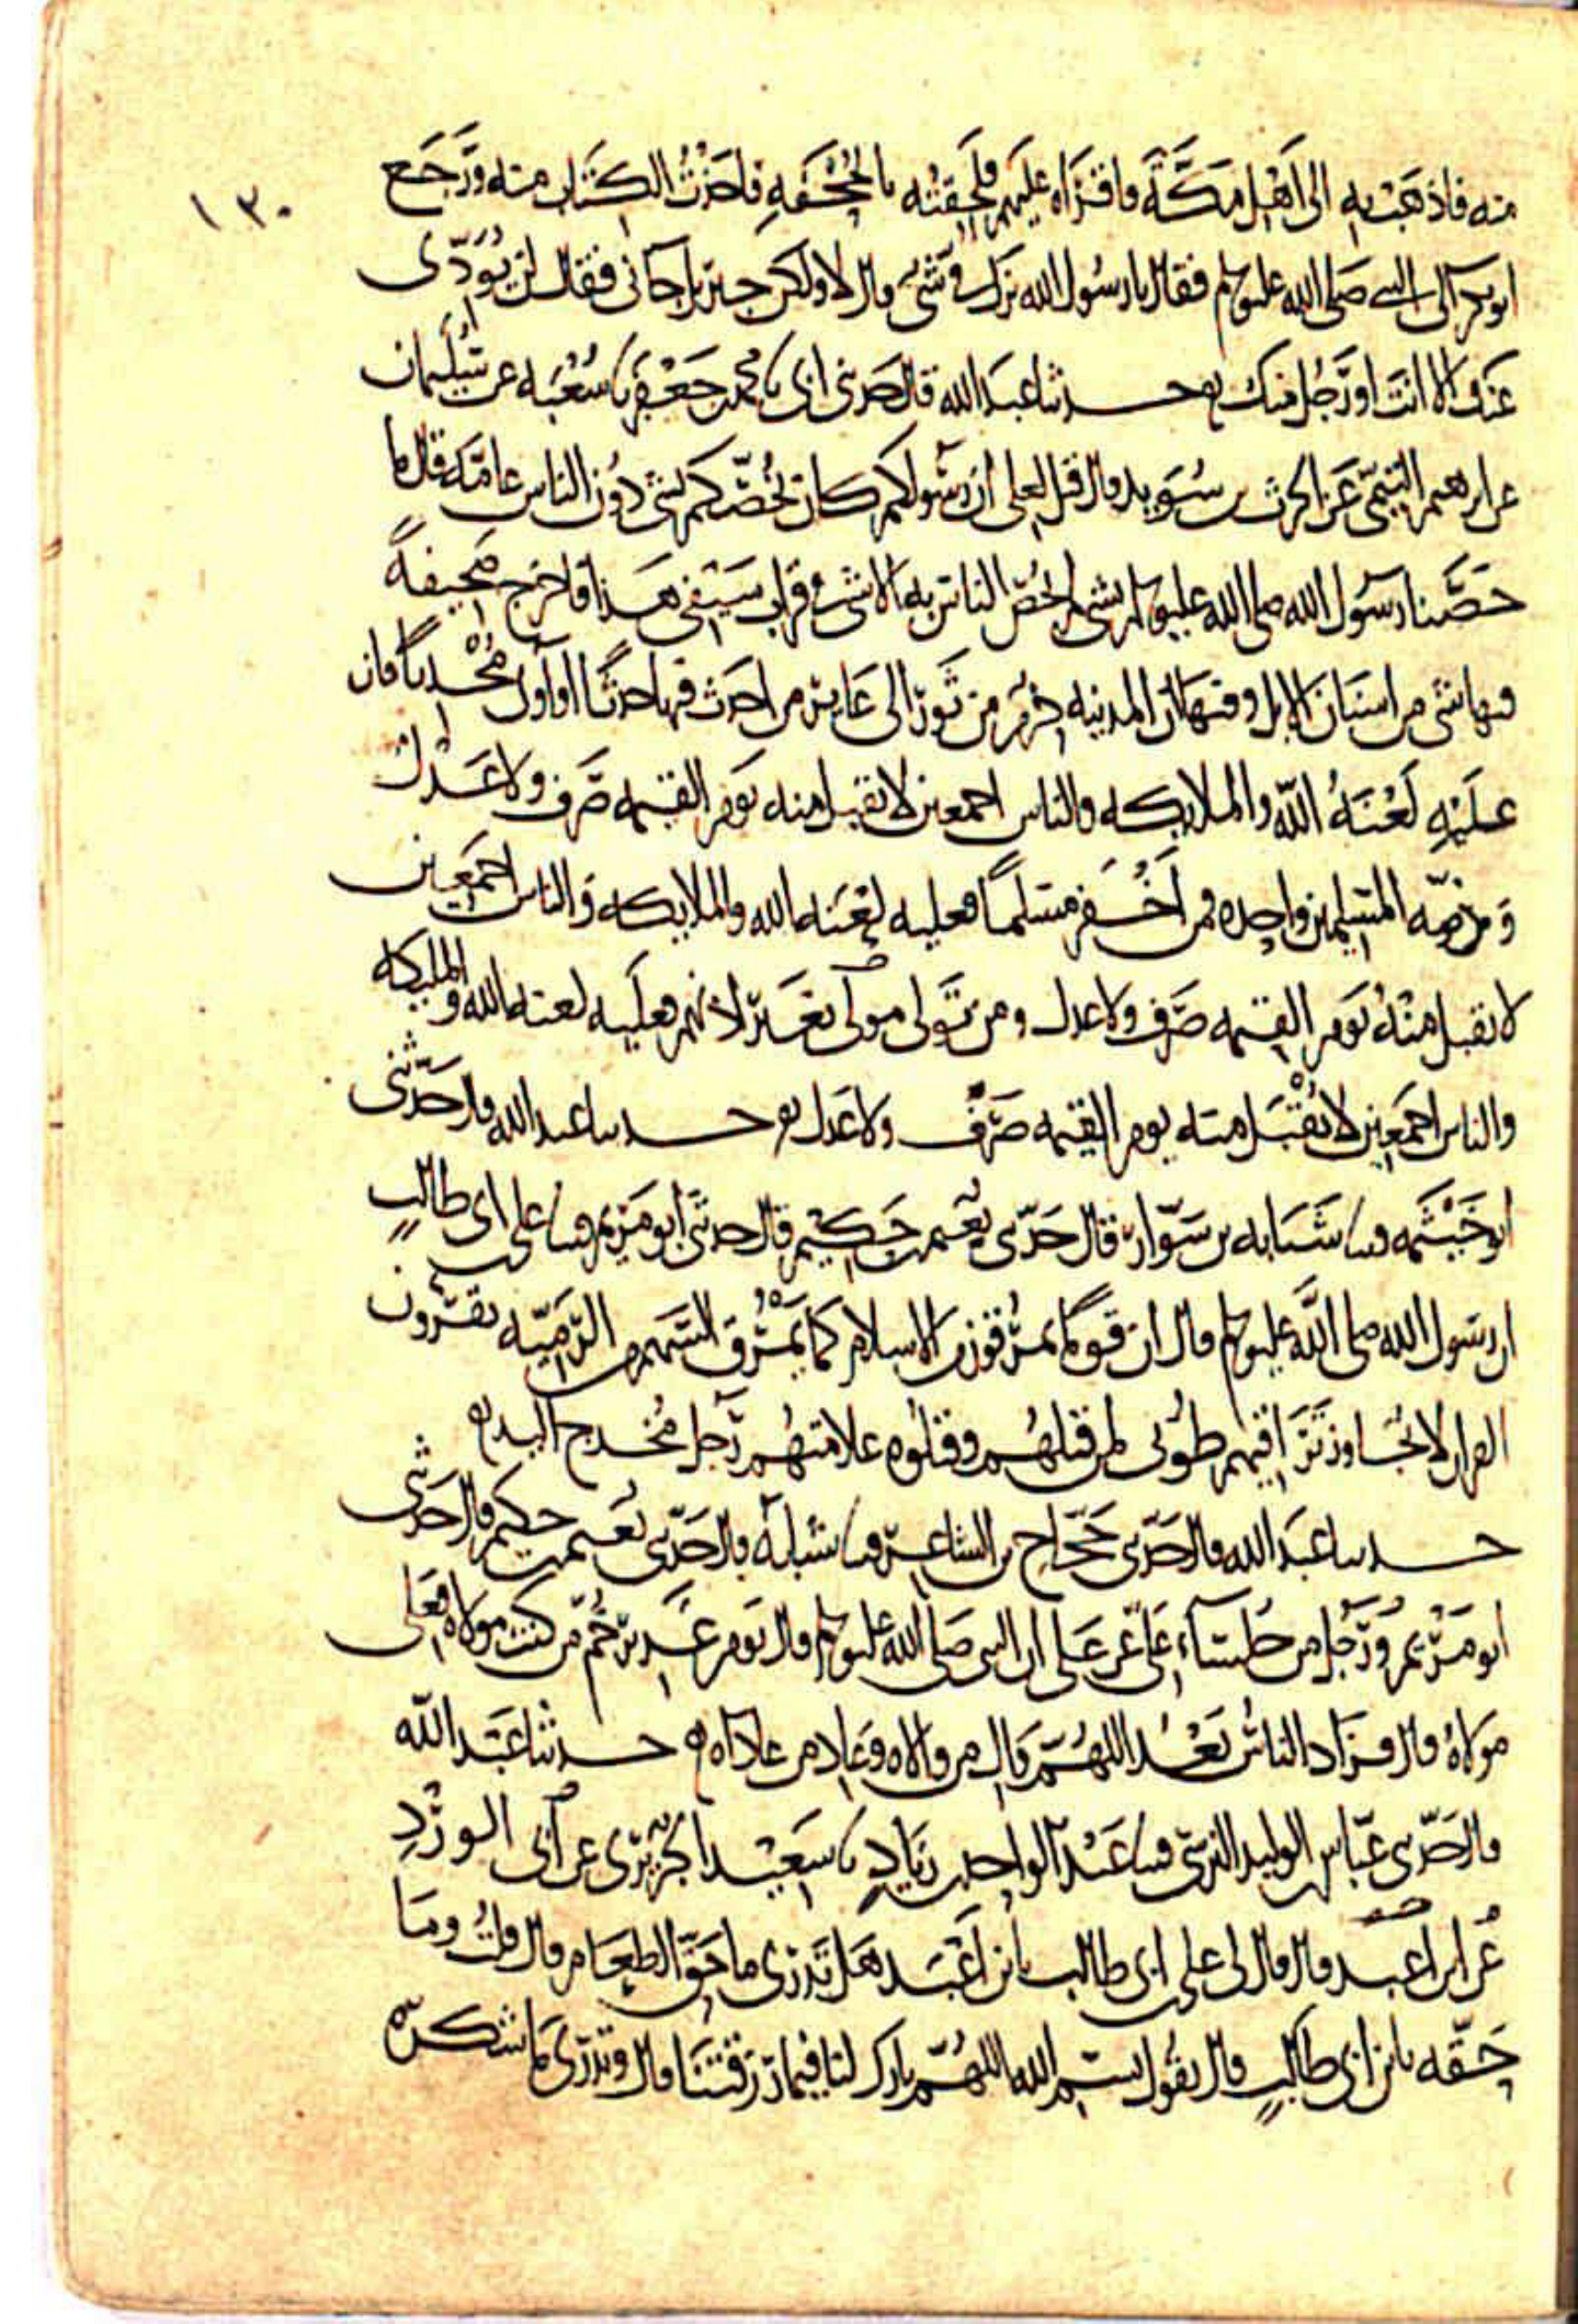 ١٣٠
منه فاذهب به الى اهل مكة فاقراه عليهم فلحقته بالجحفة فاخذت الكتاب منه ورجع
ابو بكر الى النبي صلى الله عليه وسلم فقال يا رسول الله نزل في شي قال لا ولكن جبريل جاني فقال لن يؤدى
عنك الا انت او رجل منك حدثنا عبد الله قال حدثني ابي نا محمد بن جعفر نا شعبه عن سليمان
عن ابرهيم التيمي عن الحرث بن سويد قال قيل لعلي ان رسولكم كان يخصكم بشي دون الناس عامة قال ما
خصنا رسول الله صلى الله عليه وسلم بشي لم يخص الناس به الا شي في قراب سيفي هذا فاخرج صحيفة
فيها شي من اسنان الابل وفيها ان المدينه حرم من ثور الى عاير من احدث فيها حدثا او اوى محدثا فان
عليه لعنة الله والملايكه والناس اجمعين لا يقبل منه يوم القيمه صرف ولا عدل
وذمه المسلمين واحده فمن اخفر مسلما فعليه لعنه الله والملايكه والناس اجمعين
لا يقبل منه يوم القيمه صرف ولا عدل ومن تولى مولى بغير اذنهم فعليه لعنه الله والمليكه
والناس اجمعين لا يقبل منه يوم القيمه صرف ولا عدل حدثنا عبد الله قال حدثني
ابو خيثمه قثنا شبابه بن سوار قال حدثني نعيم بن حكيم قال حدثني ابو مريم قثنا علي بن ابي طالب
ان رسول الله صلى الله عليه وسلم قال ان قوما يمرقون من الاسلام كما يمرق السهم من الرمية يقرون
القران لا يجاوز تراقيهم طوبى لمن قتلهم وقتلوه علامتهم رجل مخدج اليد
حدثنا عبد الله قال حدثني حجاج بن الشاعر قثنا شبابة قال حدثني نعيم بن حكيم قال حدثني
ابو مريم ورجل من جلساء علي عن علي ان النبي صلى الله عليه وسلم قال يوم غدير خم من كنت مولاه فعلي
مولاه قال فزاد الناس بعد اللهم وال من والاه وعاد من عاداه حدثنا عبد الله
قال حدثني عباس بن الوليد النرسي قثنا عبد الواحد بن زياد نا سعيد الجريري عن ابي الورد
عن ابن اعبد قال قال لي علي بن ابي طالب يا بن اعبد هل تدري ما حق الطعام قال قلت وما
حقه يا بن ابي طالب قال تقول بسم الله اللهم بارك لنا فيما رزقتنا قال وتدري ما شكره